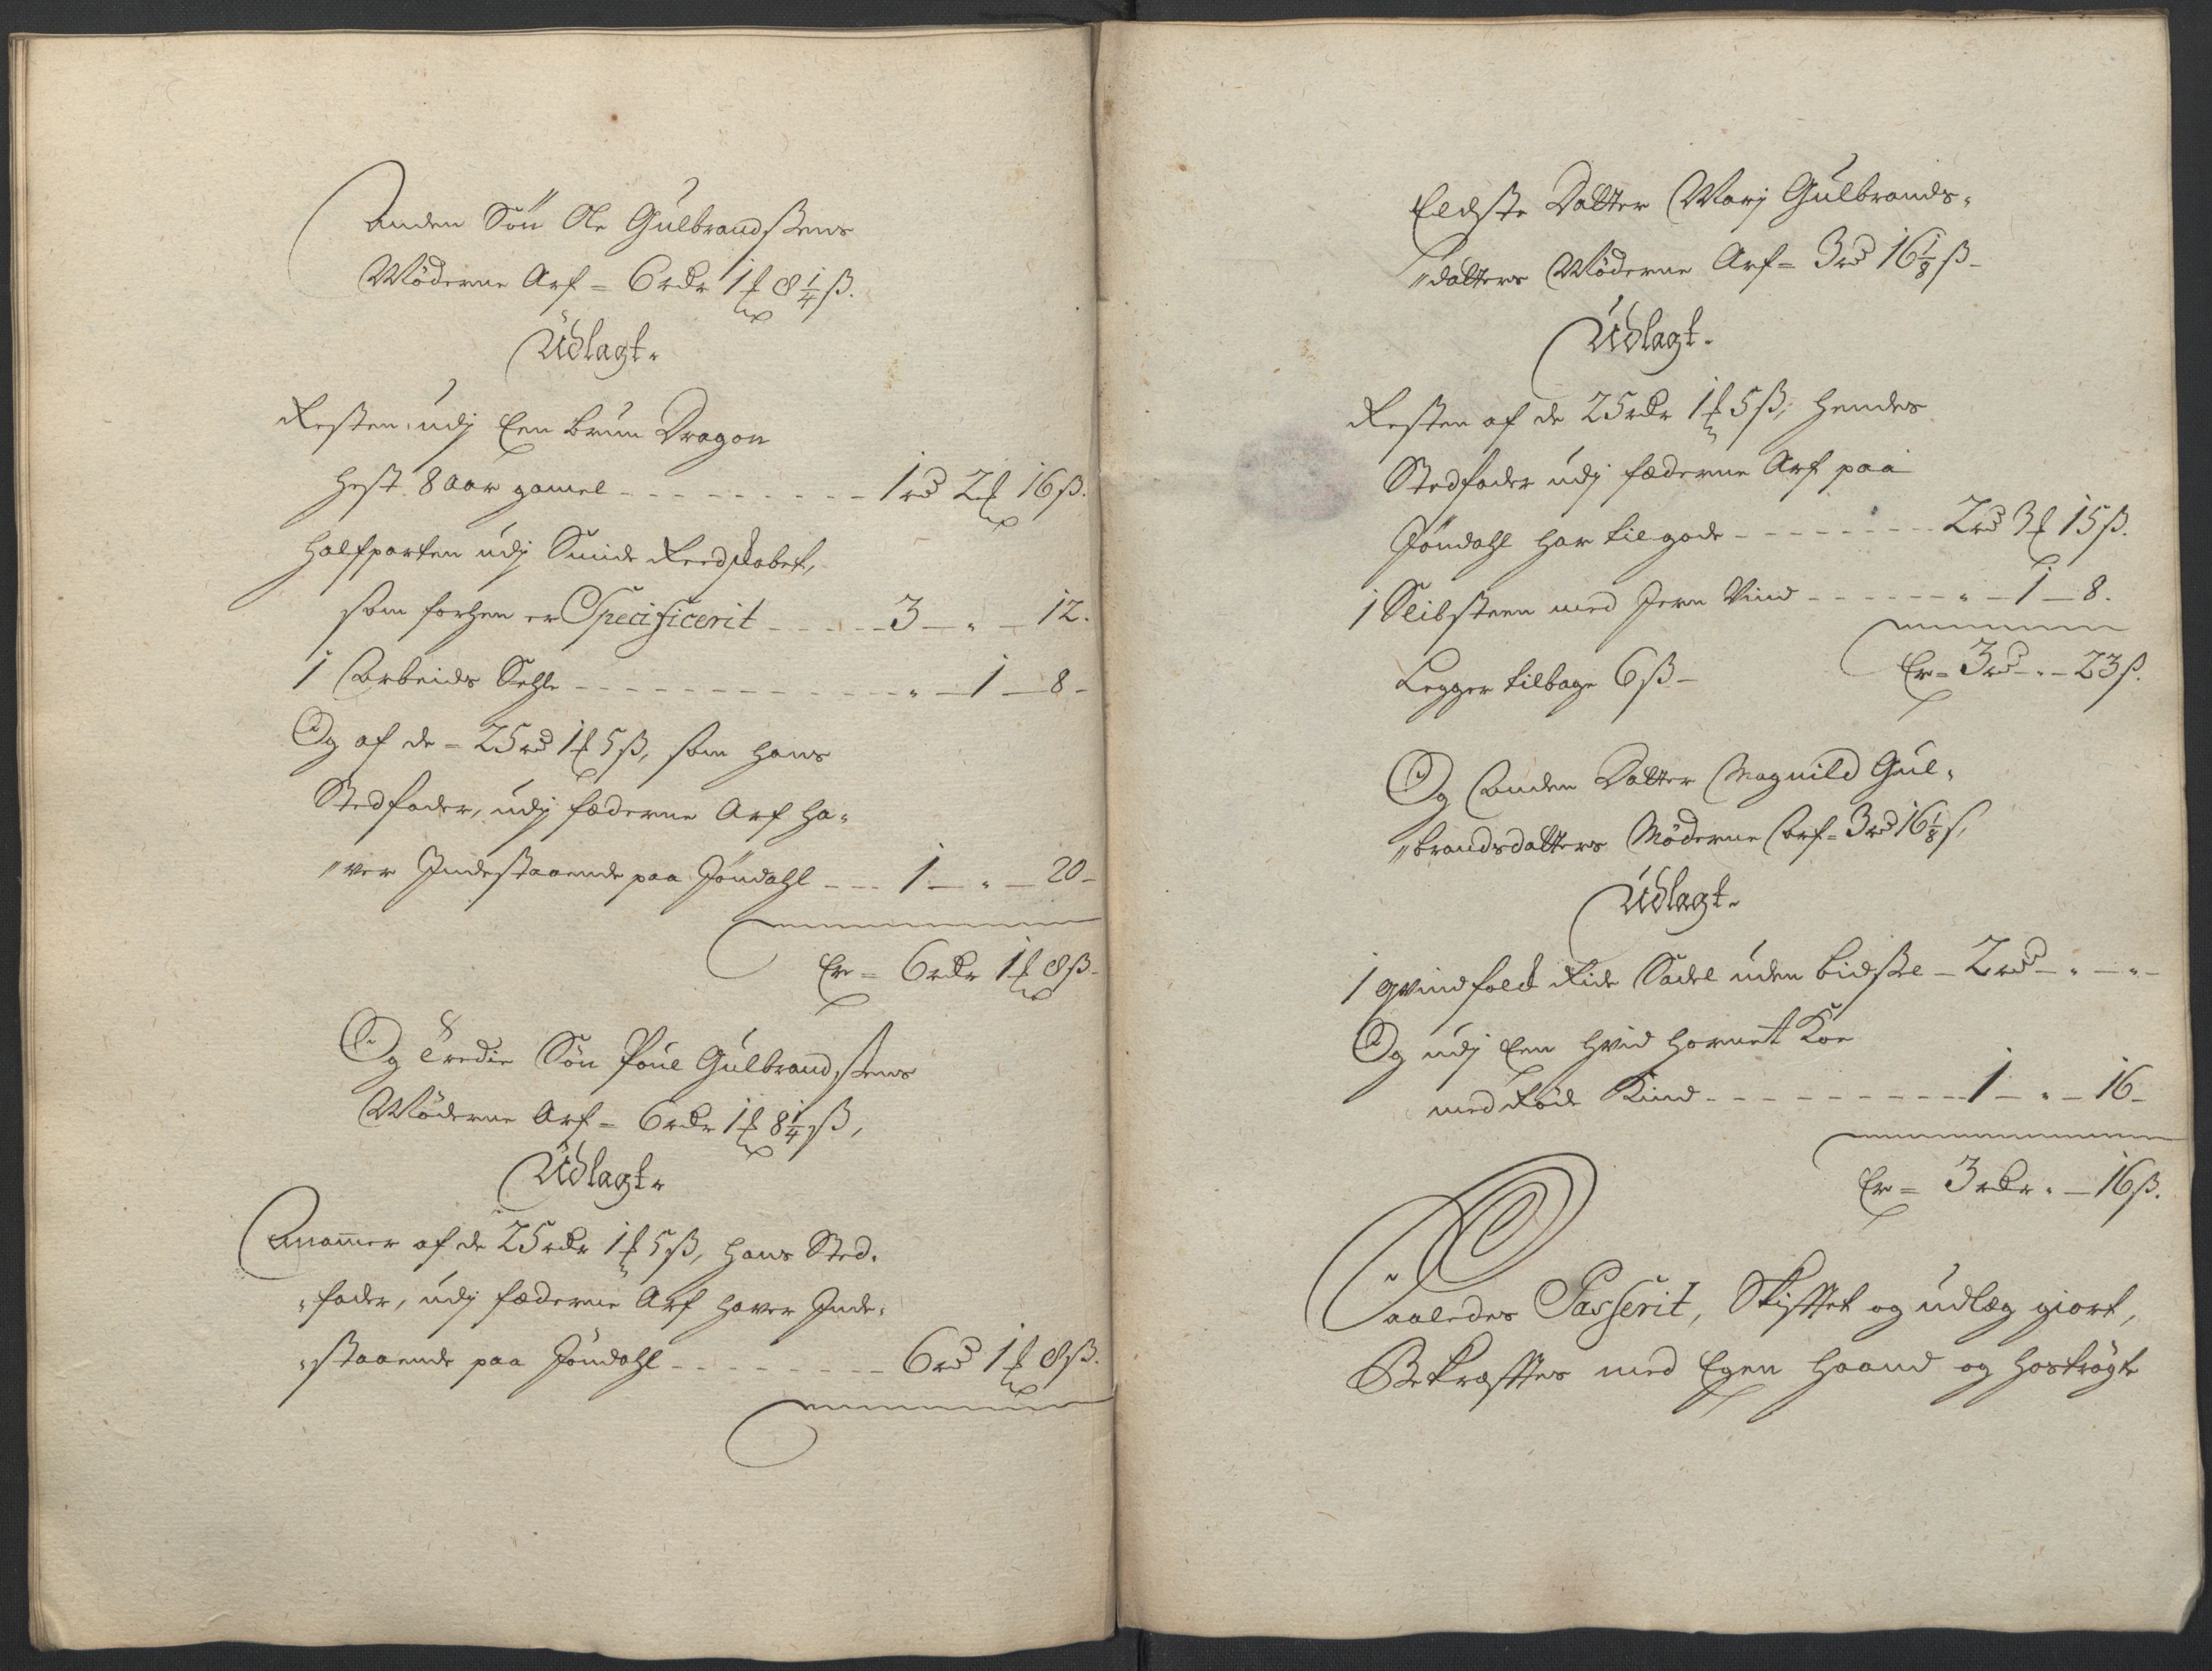 Anden Søn Ole Gulbrandssens
Møderne Arf = 6 rdr 1 ℔ 8 1/4 ß.
Udlagt.
Resten udj Een brun Dragon
Hest 8 Aar gamel - - - 1 rd 2 ℔ 16 ß.
Halfparten udj Smide Reedskabet,
som forhen er Specificerit - - - 3 - " - 12.
1 Arbeids Sehle - - - " - 1 - 8 -
Og af de = 25 rd 1 ℔ 5 ß, som hans
Stedfader, udj fæderne Arf ha-
"ver Indestaaende paa Jøndahl - - - 1 - " - 20 -
Er = 6 rdr 1 ℔ 8 ß -
Og Tredie Søn Poul Gulbrandssens
Møderne Arf = 6 rdr 1 ℔ 8 1/4 ß,
Udlagt.
Anammer af de 25 rdr 1 ℔ 5 ß, hans Sted-
"fader, udj fæderne Arf haver Inde-
"staaende paa Jøndahl - - - 6 rd 1 ℔ 8 ß.
Eldste Datter Marj Gulbrands-
"datters Møderne Arf = 3 rd 16 1/8 ß -
Udlagt.
Resten af de 25 rdr 1 ℔ 5 ß, hendes
Stedfader udj fæderne Arf paa
Jøndahl har tilgode - - - 2 rd 3 ℔ 15 ß.
1 Slibsteen med Jern Vind - - - " - 1 - 8.
Er = 3 rd - " - 23 ß.
Legger tilbage 6 ß -
Og Anden Datter Magnild Gul-
"brandsdatters Møderne Arf = 3 rd 16 1/8 ß,
Udlagt.
1 qvindfolk Ride Sadel uden bidssel - 2 rd - " - " -
Og udj Een hvid hornet Koe
med Røde Kind - - - 1 - " - 16 -
Er = 3 rdr " - 16 ß.
Saaledes Passerit, Skifftet og udlæg giort,
Bekræfftes med Egen Haand og hostrøgte